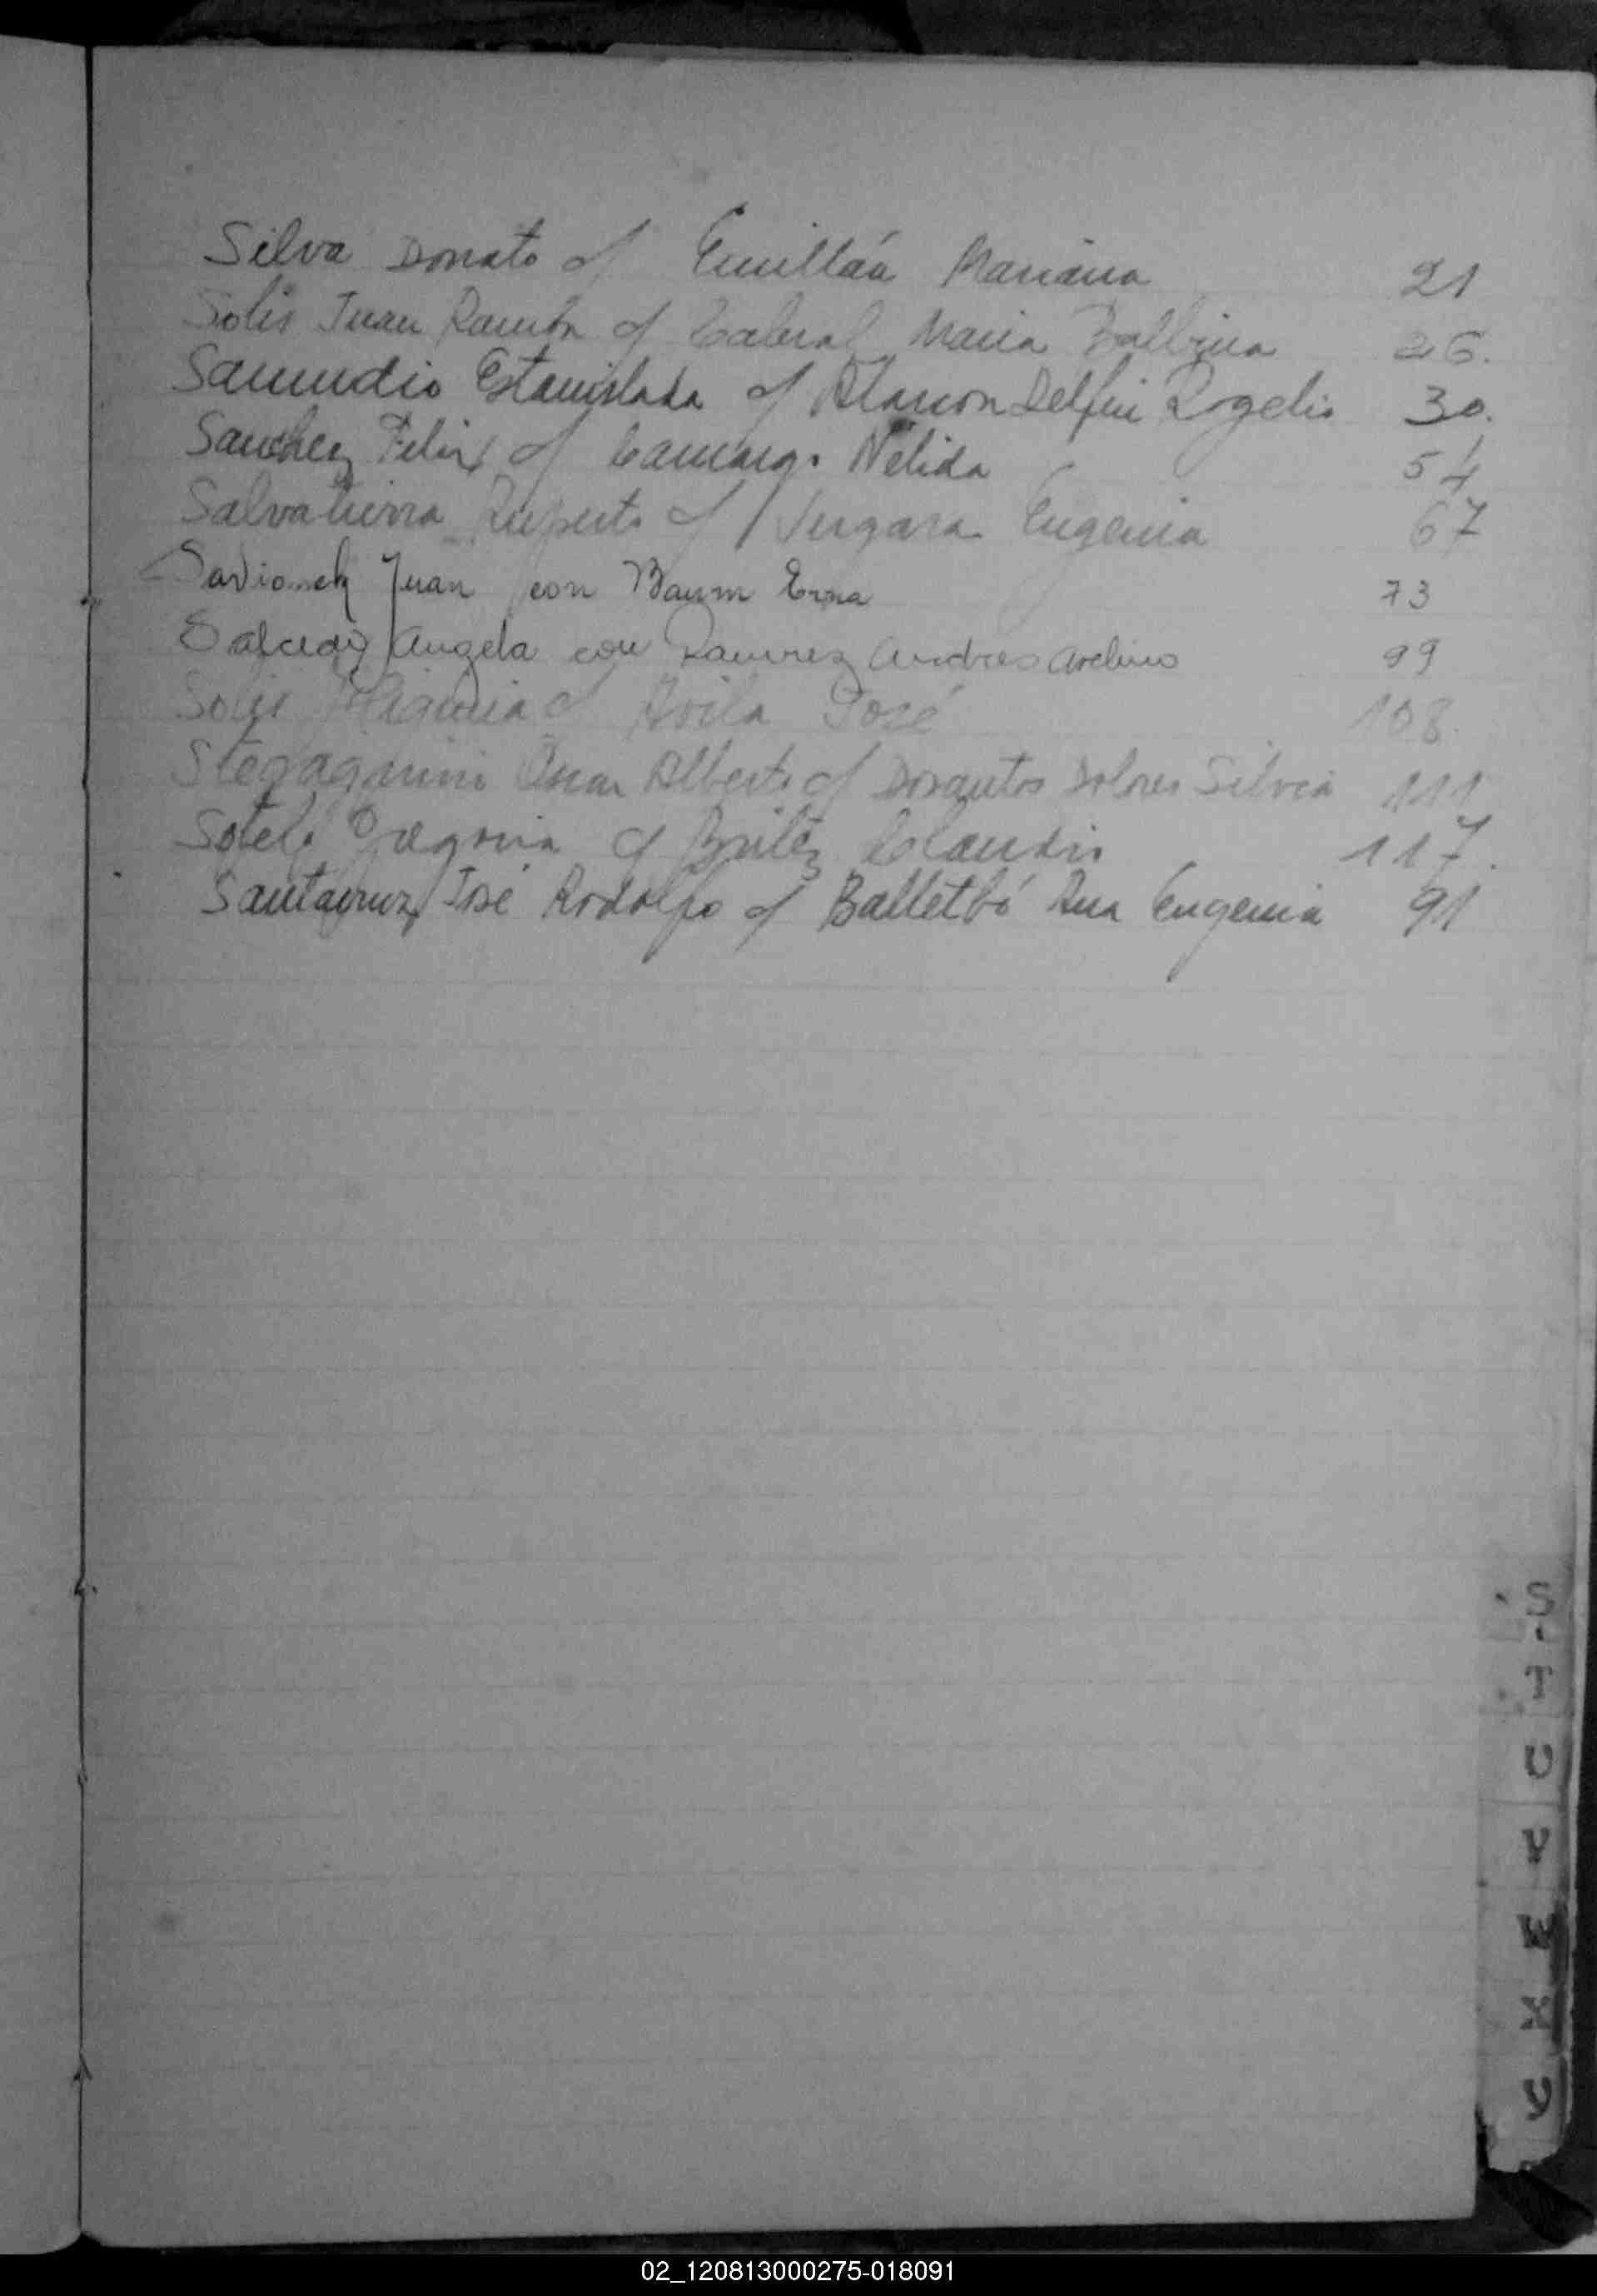 Silva Donato c/ Emillán Mariana 21
Solis Juan Ramón c/ Cabral Maria Balbina 26.
Samudio Estanislada c/ Alarcon Delfin Rogelio 30.
Sanchez Felix c/ Camargo Nélida 54
Salvatierra Ruperto c/ Vergara Eugenia 67
Juan con Baum Erna 73
Salcedo Angela con Ramirez Andres Avelino 99
Solis Higinia c/ Avila José 108.
Oscar Alberto c/ Dosantos Dolores Silvia 111
Sotelo Gregoria c/ Britez Claudio 117.
Santacruz José Rodolfo c/ Balletbó Ana Eugenia 91
S
T
U
V
X
02_120813000275-018091